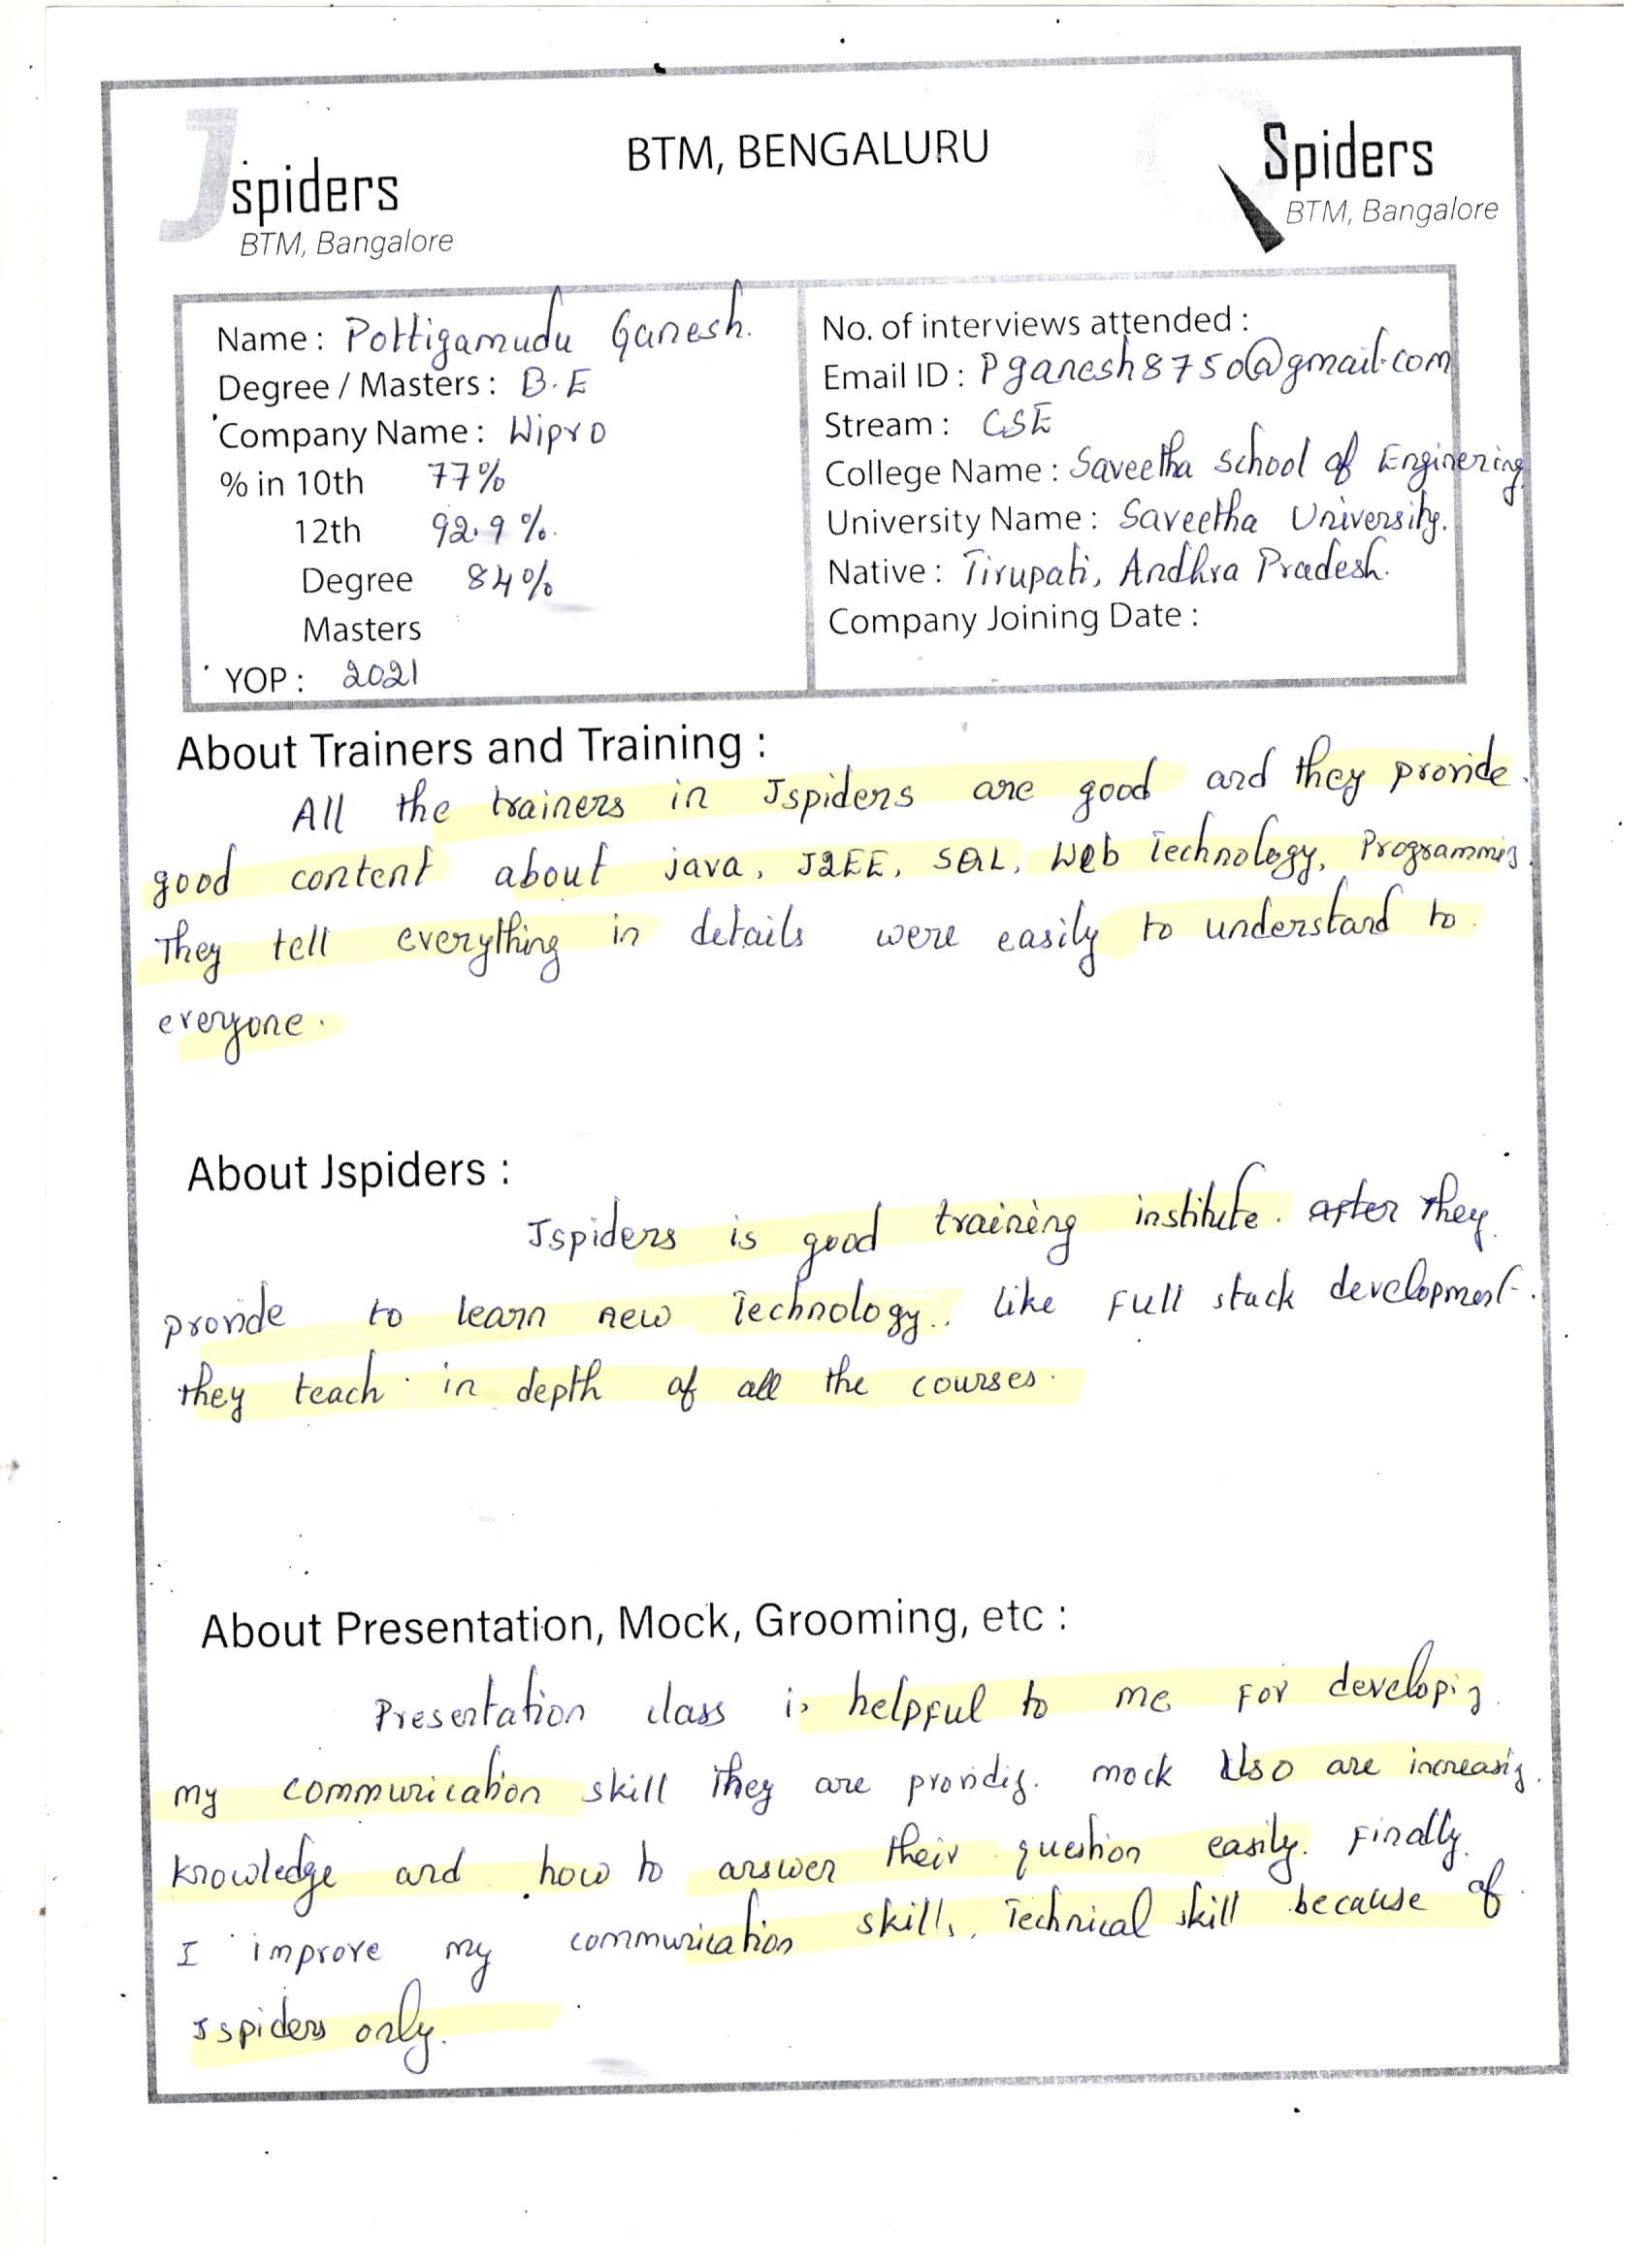 Jspiders
BTM, Bangalore
BTM, BENGALURU
QSpiders
BTM, Bangalore
Name : Pottigamudu Ganesh.
Degree / Masters : B.E
Company Name : Wipro
% in 10th 77%
12th 92.9%.
Degree 84%
Masters
YOP : 2021
No. of interviews attended :
Email ID : Pganesh8750@gmail.com
Stream : CSE
College Name : Saveetha School of Enginering
University Name : Saveetha University.
Native : Tirupati, Andhra Pradesh.
Company Joining Date :
About Trainers and Training :
All the trainers in Jspiders are good and they provide.
good content about java, J2EE, SQL, Web Technology, Programming.
They tell everything in details were easily to understand to
everyone.
About Jspiders :
Jspiders is good training institute. after they
provide to learn new Technology. like Full stack development.
they teach in depth of all the courses.
About Presentation, Mock, Grooming, etc :
Presentation class is helpful to me For developing
my communication skill They are providig. mock Also are increasig.
knowledge and how to answer their question easily. Finally.
I improve my communication skills, Technical skill because of
Jspiders only.